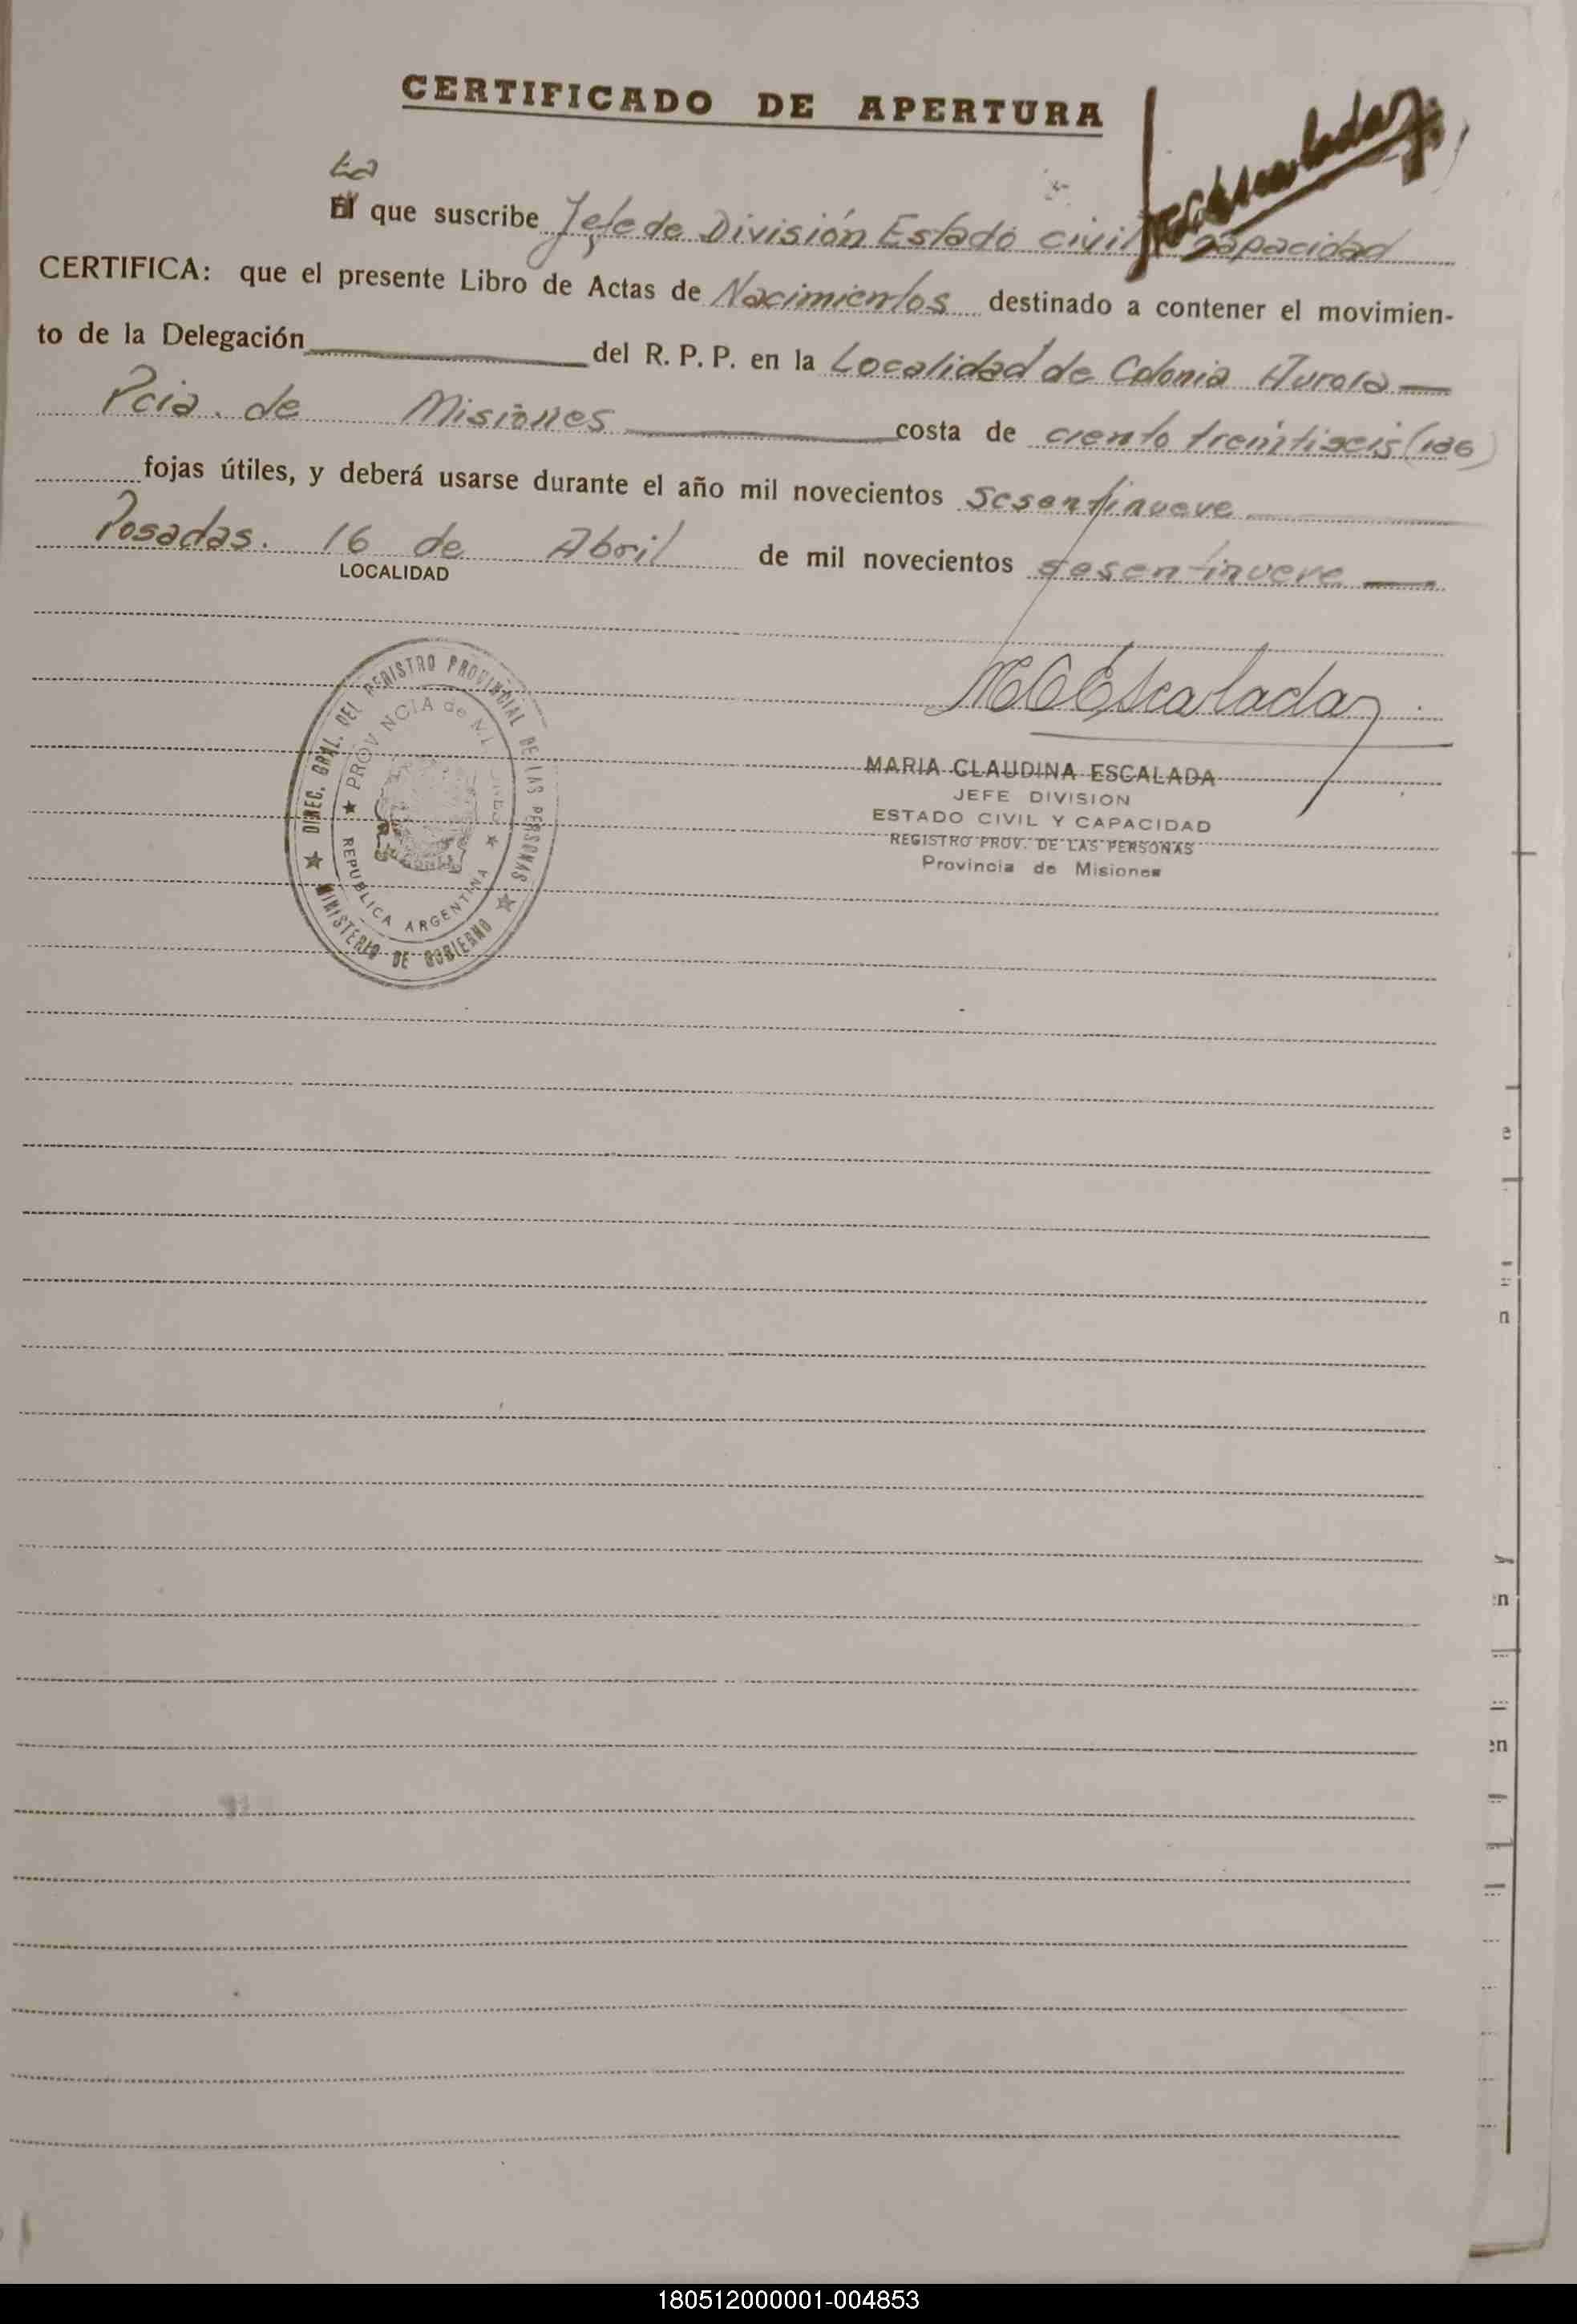 CERTIFICADO DE APERTURA
La
El que suscribe Jefe de División Estado civil capacidad
CERTIFICA: que el presente Libro de Actas de Nacimientos destinado a contener el movimien-
to de la Delegación del R. P. P. en la Localidad de Colonia Aurora
Pcia. de Misiones costa de ciento treintiseis (136)
fojas útiles, y deberá usarse durante el año mil novecientos Sesentinueve
Posadas. 16 de Abril de mil novecientos sesentinueve
LOCALIDAD
MCEscalada
MARIA CLAUDINA ESCALADA
JEFE DIVISION
ESTADO CIVIL Y CAPACIDAD
REGISTRO PROV. DE LAS PERSONAS
Provincia de Misiones
DIREC. GRAL. DEL REGISTRO PROVINCIAL DE LAS PERSONAS
MINISTERIO DE GOBIERNO
PROVINCIA de
REPUBLICA ARGENTINA
180512000001-004853